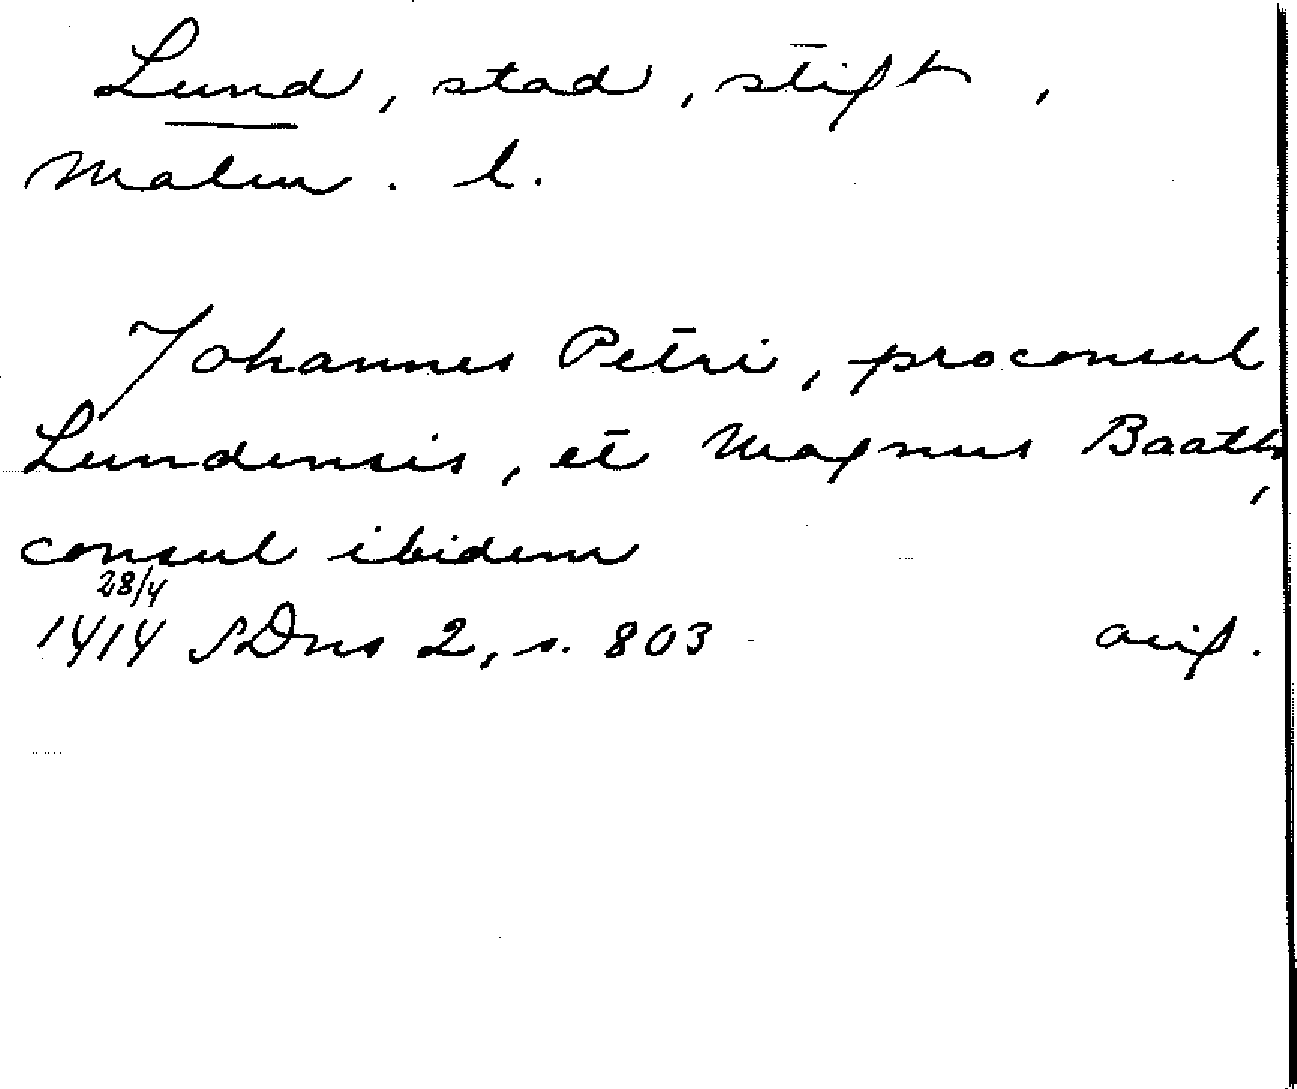 Lund, stad, stift,
Malm. l.
Johannes Petri, proconsul
Lundensis, et Magnus Baath,
consul ibidem
28/4
1414 SDns 2, s. 803 avsk.